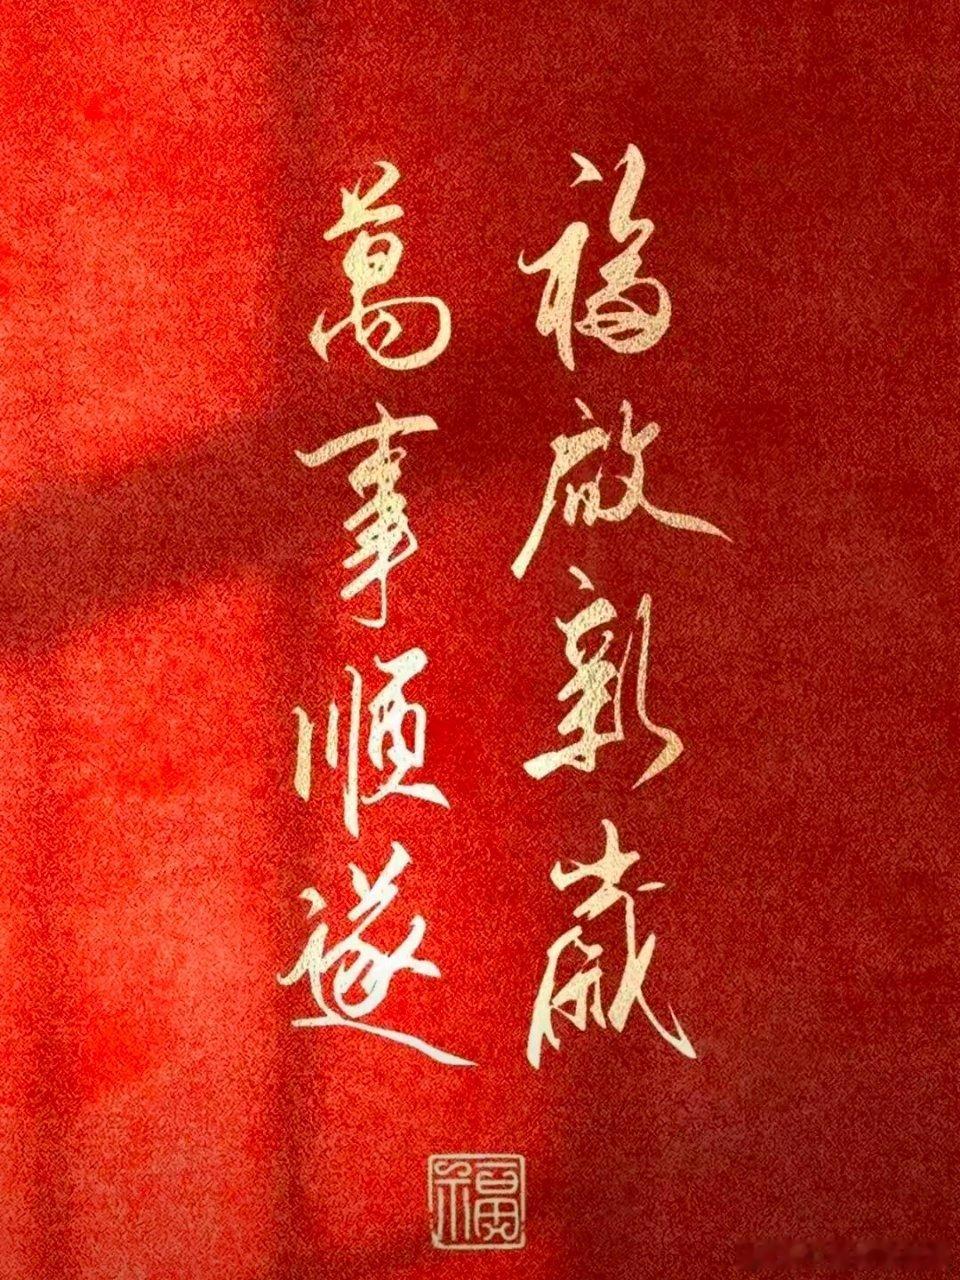 福啟新歲
萬事順遂
福